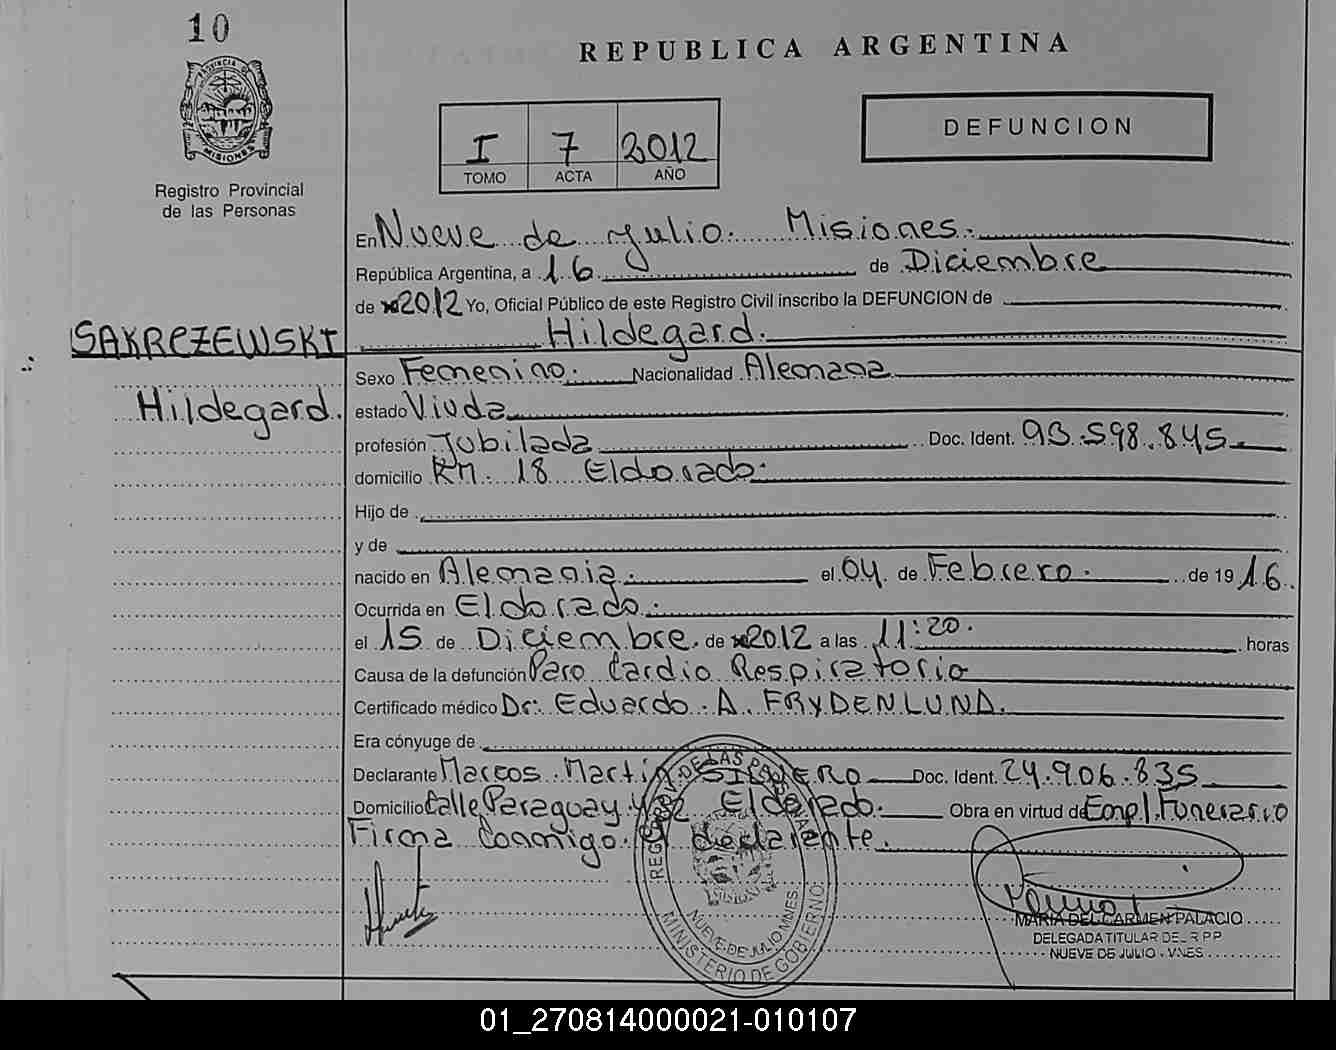 10
REPUBLICA ARGENTINA
PROVINCIA DE MISIONES
Registro Provincial
de las Personas
I 7 2012
TOMO ACTA AÑO
DEFUNCION
En Nueve de Julio. Misiones.
República Argentina, a 16 de Diciembre
de 2012 Yo, Oficial Público de este Registro Civil inscribo la DEFUNCION de
SAKRCZEWSKI
Hildegard.
Hildegard.
Sexo Femenino. Nacionalidad Alemana
estado Viuda
profesión Jubilada Doc. Ident. 93.598.845
domicilio KM. 18 Eldorado.
Hijo de
y de
nacido en Alemania. el 04 de Febrero. de 1916.
Ocurrida en Eldorado.
el 15 de Diciembre. de 2012 a las 11:20. horas
Causa de la defunción Paro Cardio Respiratorio
Certificado médico Dr. Eduardo A. FRYDENLUND.
Era cónyuge de
Declarante Marcos Martin Doc. Ident. 24.906.835
Domicilio Calle Paraguay Eldorado. Obra en virtud de Empl. Funerario
Firma Conmigo declarante.
REG. PROV. DE LAS PERSONAS
MISIONES
NUEVE DE JULIO MNES.
MINISTERIO DE GOBIERNO
MARIA DEL CARMEN PALACIO
DELEGADA TITULAR DEL R P P
NUEVE DE JULIO - MNES
01_270814000021-010107